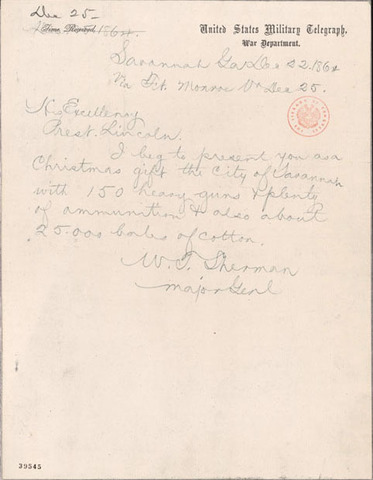 Dec 25-
Time Received 1864.
United States Military Telegraph,
War Department.
Savannah Ga Dec 22. 1864
Via Ft. Monroe Va Dec 25.
His Excellency
Prest. Lincoln.
I beg to present you as a
Christmas gift the City of Savannah
with 150 heavy guns & plenty
of ammunition & also about
25.000 bales of cotton.
W. T. Sherman
Major Genl
39545